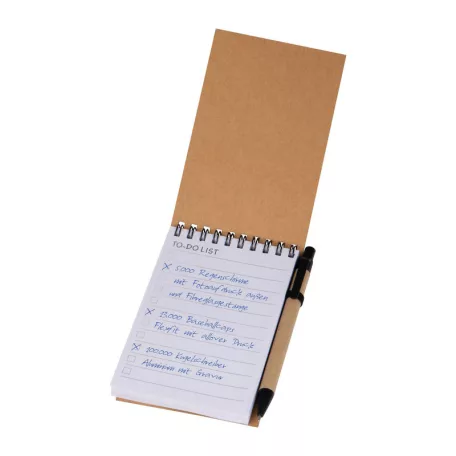 TO-DO LIST
5.000 Regenschirme
mit Fotoaufdruck außen
und Fiberglasgestänge
15.000 Baseballcaps
Flexfit mit allover Druck
100.000 Kugelschreiber
Aluminium mit Gravur